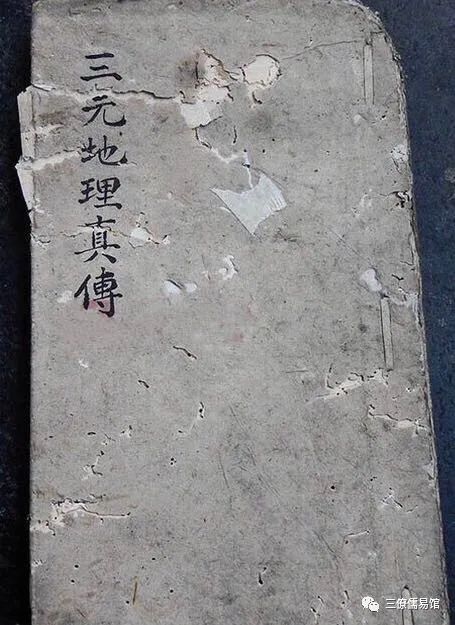 三元地理真傳
三僚儒易馆